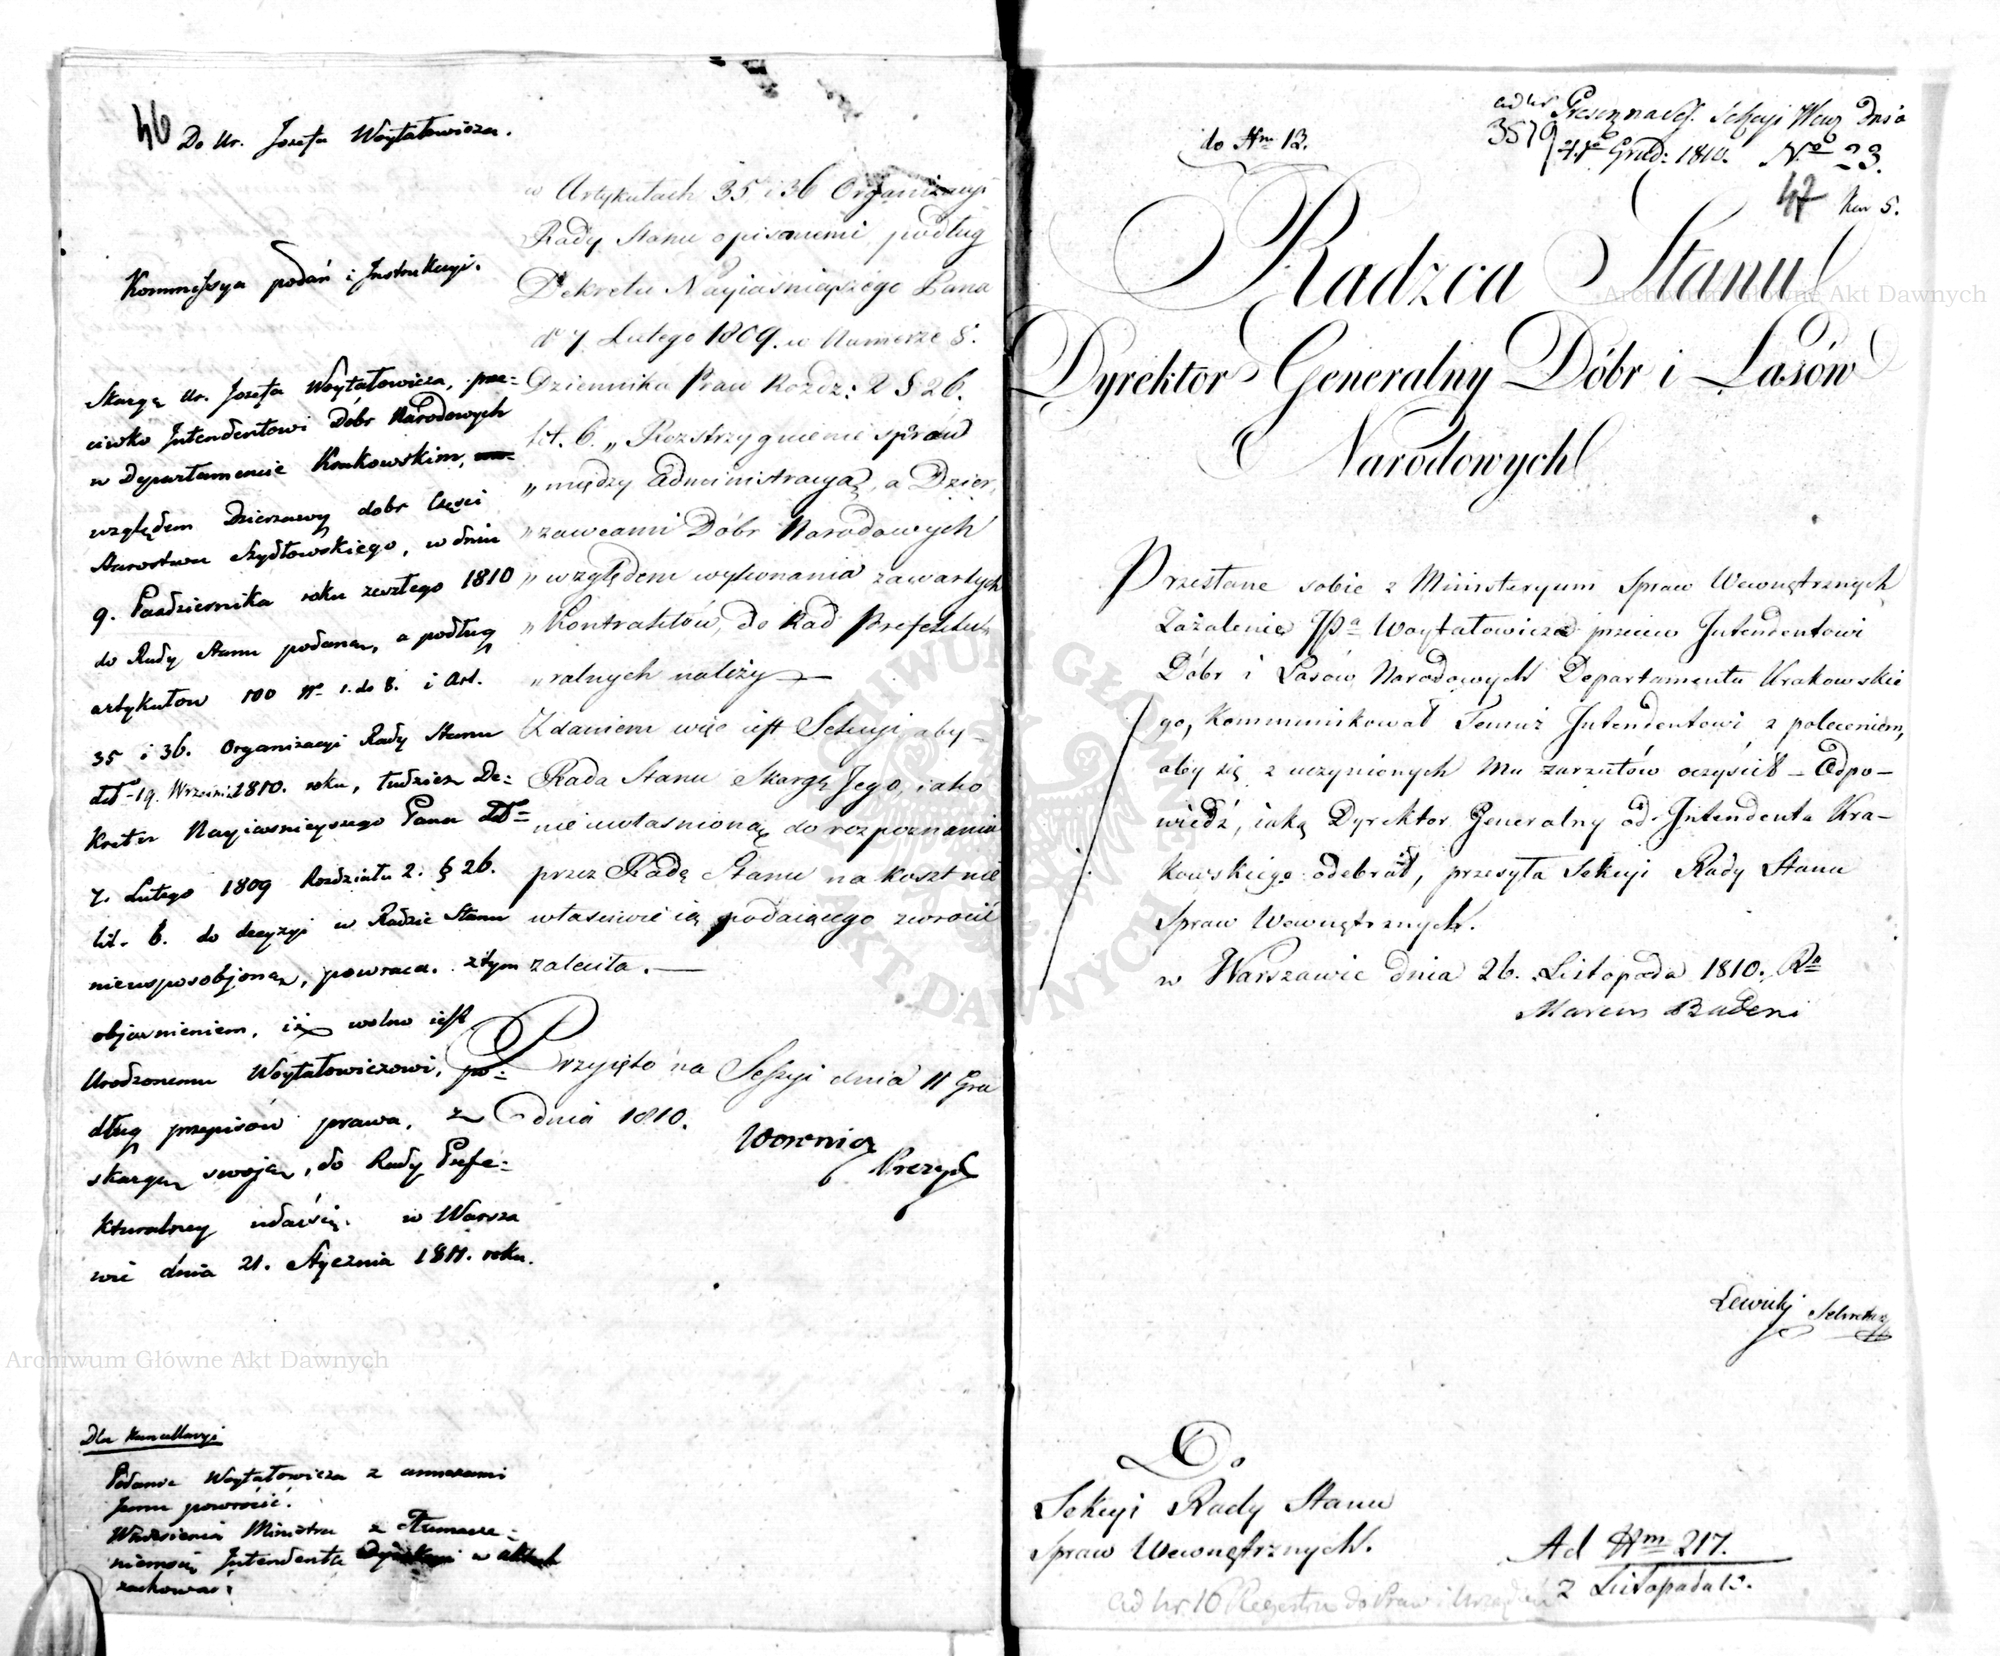 46
Do Ur. Jozefa Woytałowicza.
Kommissya podań i Instrukcyi.
Skargę Ur. Jozefa Woytałowicza, prze=
ciwko Intendentowi Dóbr Narodowych
w Departamencie Krakowskim,
względem Dzierzawy dobr Części
Starostwa Szydłowskiego, w dniu
9. Pazdziernika roku zeszłego 1810
do Rady Stanu podaną, a podług
artykułow 100 Nro 1. do 8. i Art.
35 i 36. Organizacyi Rady Stanu
dtto 19. Wrześ: 1810. roku, tudziez De=
kretu Nayiasnieyszego Pana dtto
7. Lutego 1809 Rozdziału 2. § 26.
lit. b. do decyzyi w Radzie Stanu
nieusposobioną, powraca. z tym
objasnieniem, iż wolno iest
Urodzonemu Woytałowiczowi, po=
dług przepisów prawa, z
skargą swoją, do Rady Prefe=
kturalney udać się. w Warsza
wie dnia 21. Stycznia 1811. roku.
Dla Kancellaryi
Podanie Woytałowicza z annexami
Jemu powrócić.
Wniesienia Ministra z Tłumacze=
niem się Intendenta w aktach
zachować:
w Artykułach 35 i 36 Organizacyi
Rady Stanu opisanemi podług
Dekretu Nayiaśnieyszego Pana
d. 7 Lutego 1809. w Numerze 8.
Dziennika Praw Rozdz: 2 § 26.
lit. b. „Rozstrzygnienie spraw
„między Administracyą, a Dzier,
„zawcami Dóbr Narodowych
„względem wykonania zawartych
„Kontraktów, do Rad Prefektu,
„ralnych należy —
Zdaniem więc iest Sekcyi, aby
Rada Stanu Skargę Jego, iako
nieuwłasnioną do rozpoznania
przez Radę Stanu na koszt nie
właściwie ią podaiącego zwrócić
zaleciła. —
Przyięto na Sessyi dnia 11 Gru
dnia 1810.
Woronicz
Prezyd
do Nru 13.
ad Nr
3579
Sekcyi Wew Dnia
Grud: 1810. No 23.
47
Radzca Stanu
Dyrektor Generalny Dóbr i Lasów
Narodowych
Przesłane sobie z Ministeryum Spraw Wewnętrznych
Zażalenie JPa Woytałowicza przeciw Intendentowi
Dóbr i Lasów Narodowych Departamentu Krakowskie
go, kommunikował Temuż Intendentowi z poleceniem,
aby się z uczynionych Mu zarzutów oczyścił – Odpo–
wiedź, iaką Dyrektor Generalny od Intendenta Kra–
kowskiego odebrał, przesyła Sekcyi Rady Stanu
Spraw Wewnętrznych.
w Warszawie dnia 26. Listopada 1810. Ro
Marcin Badeni
Lewicki Sekretarz
Do
Sekcyi Rady Stanu
Spraw Wewnętrznych.
Ad Num 217.
z Listopada 10.
ad Nr. 10 Regestru do Praw i Urządzeń
Archiwum Główne Akt Dawnych
Archiwum Główne Akt Dawnych
ARCHIWUM GŁÓWNE AKT DAWNYCH